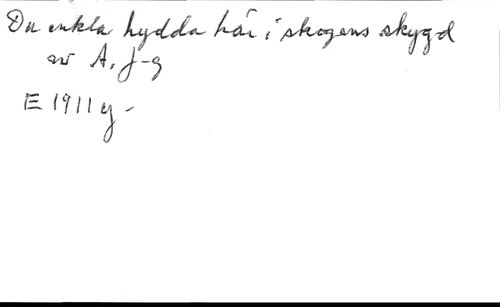 Du enkla hydda här i skogens skygd
av A. J-g
E 1911 y -